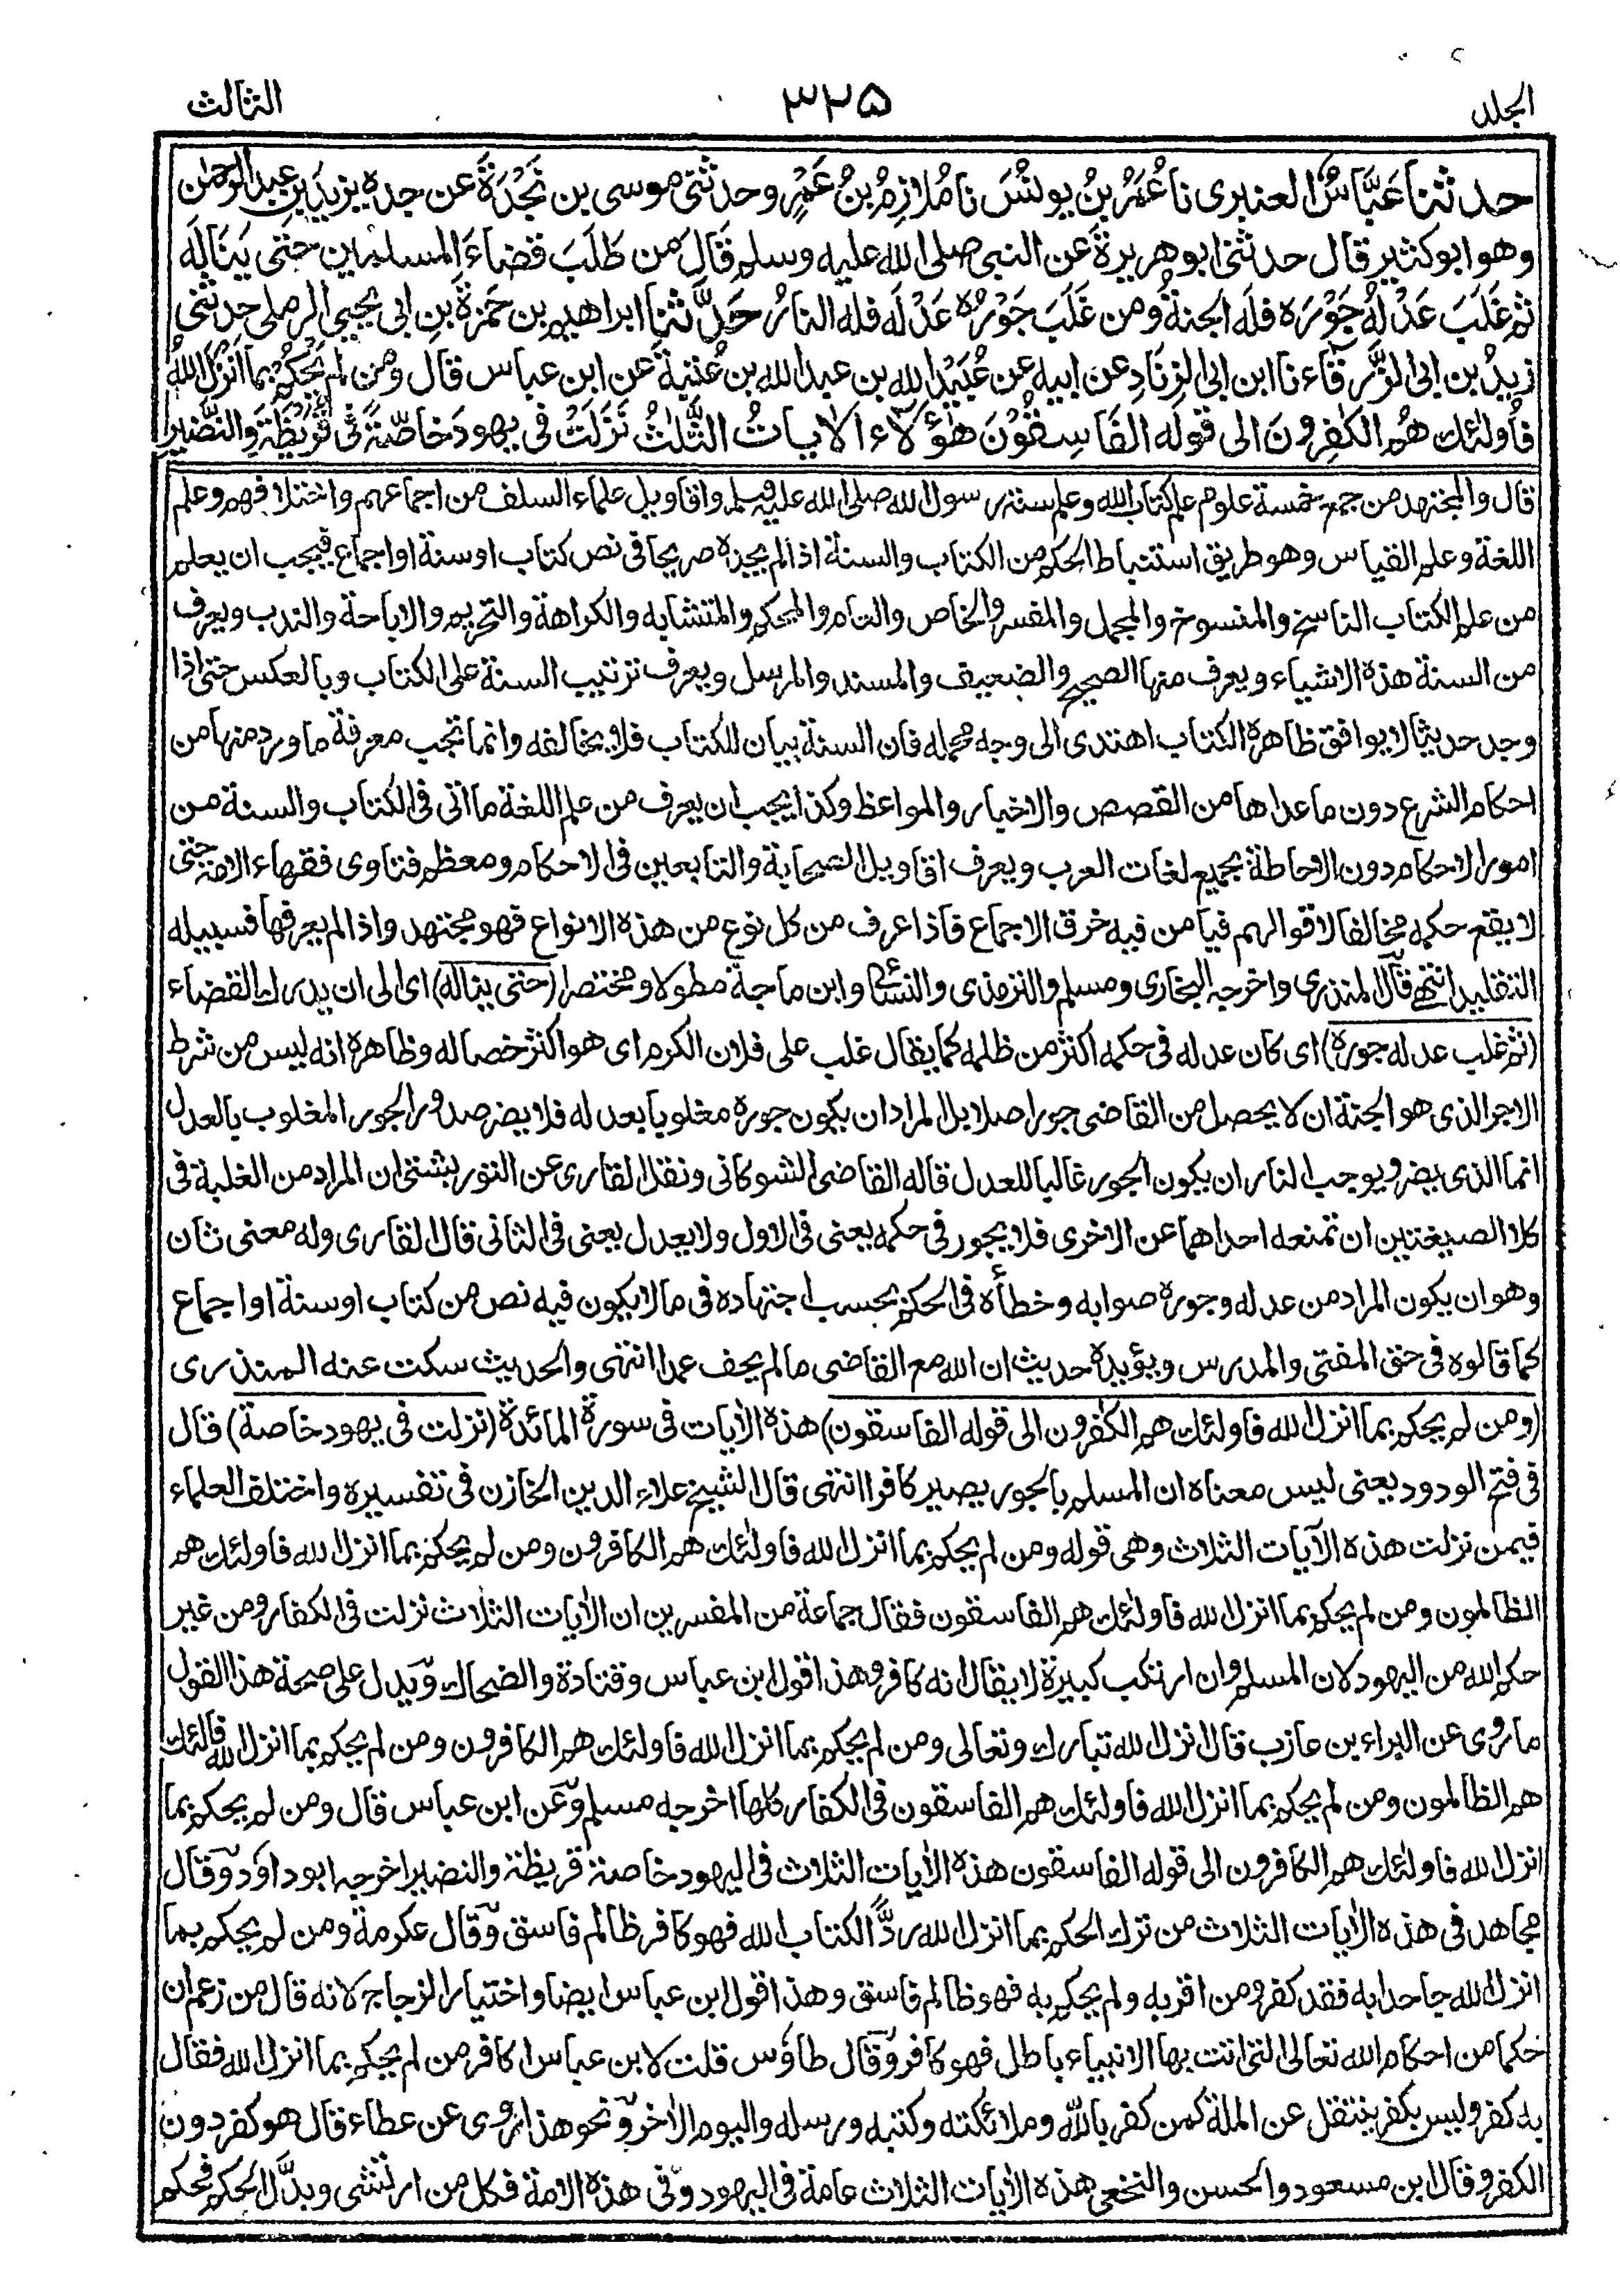 الجلد ٣٢٥ الثالث
حدثنا عَبَّاسٌ العنبرى نا عُمَرُ بنُ يونُسَ نا مُلازِمُ بنُ عَمْرٍو حدثنى موسى بن نَجْدَةَ عن جده يزيدَ بنِ عبد الرحمٰن
وهو ابو كثير قال حدثنى ابو هريرةَ عن النبى صلى الله عليه وسلم قَالَ من طَلَبَ قضاءَ المسلمين حتى يَنَالَه
ثم غَلَبَ عَدْلُهُ جَوْرَه فله الجنةُ ومن غَلَبَ جَوْرُه عَدْلَه فله النارُ حَدَّثنا ابراهيم بن حَمزةَ بنِ ابى يحيى الرملى حدثنى
زيدُ بن ابى الزَّرقاء نا ابن ابى الزِنَادِ عن ابيه عن عُبَيْد الله بن عبد الله بن عُتبةَ عن ابن عباس قال ومن لم يَحْكُمْ بما اَنْزَلَ اللهُ
فأولئك هُمُ الكٰفِرونَ الى قوله الفَاسِقُوْنَ هٰؤلاء الاٰياتُ الثَّلٰثُ نَزَلَتْ فى يهودَ خاصّةً فى قُرَيْظَةَ وَالنَّضِيرِ
قال والمجتهد من جمع خمسة علوم علم كتاب الله وعلم سنة رسول الله صلى الله عليه وسلم واقاويل علماء السلف من اجماعهم واختلافهم وعلم
اللغة وعلم القياس وهو طريق استنباط الحكم من الكتاب والسنة اذا لم يجده صريحا فى نص كتاب او سنة او اجماع فيجب ان يعلم
من علم الكتاب الناسخ والمنسوخ والمجمل والمفسر والخاص والعام والمحكم والمتشابه والكراهة والتحريم والاباحة والندب ويعرف
من السنة هذه الاشياء ويعرف منها الصحيح والضعيف والمسند والمرسل ويعرف ترتيب السنة على الكتاب وبالعكس حتى اذا
وجد حديثا لا يوافق ظاهره الكتاب اهتدى الى وجه محمله فان السنة بيان للكتاب فلا يخالفه وانما تجب معرفة ما ورد منها من
احكام الشرع دون ما عداها من القصص والاخبار والمواعظ وكذا يجب ان يعرف من علم اللغة ما اتى فى الكتاب والسنة من
امور الاحكام دون الاحاطة بجميع لغات العرب ويعرف اقاويل الصحابة والتابعين فى الاحكام ومعظم فتاوى فقهاء الامة حتى
لا يقع حكمه مخالفا لاقوالهم فيامن فيه خرق الاجماع فاذا عرف من كل نوع من هذه الانواع فهو مجتهد واذا لم يعرفها فسبيله
التقليد انتهى قال المنذرى واخرجه البخارى ومسلم والترمذى والنسائى وابن ماجة مطولا ومختصرا (حتى يناله) اى الى ان يدرك القضاء
(ثم غلب عدله جوره) اى كان عدله فى حكمه اكثر من ظلمه كما يقال غلب على فلان الكرم اى هو اكثر خصاله وظاهره انه ليس من شرط
الاجر الذى هو الجنة ان لا يحصل من القاضى جور اصلا بل المراد ان يكون جوره مغلوبا بعدله فلا يضر صدور الجور المغلوب بالعدل
انما الذى يضر ويوجب النار ان يكون الجور غالبا للعدل قاله القاضى الشوكانى ونقل القارى عن التوربشتى ان المراد من الغلبة فى
كلا الصيغتين ان تمنعه احداهما عن الاخرى فلا يجور فى حكمه يعنى فى الاول ولا يعدل يعنى فى الثانى قال القارى وله معنى ثان
وهو ان يكون المراد من عدله وجوره صوابه وخطأه فى الحكم بحسب اجتهاده فى ما لا يكون فيه نص من كتاب او سنة او اجماع
كما قالوه فى حق المفتى والمدرس ويؤيده حديث ان الله مع القاضى ما لم يحف عمدا انتهى والحديث سكت عنه المنذرى
(ومن لم يحكم بما انزل الله فاولئك هم الكٰفرون الى قوله الفاسقون) هذه الاٰيات فى سورة المائدة (نزلت فى يهود خاصة) قال
فى فتح الودود يعنى ليس معناه ان المسلم بالجور يصير كافرا انتهى قال الشيخ علاء الدين الخازن فى تفسيره واختلف العلماء
فيمن نزلت هذه الاٰيات الثلاث وهى قوله ومن لم يحكم بما انزل الله فاولئك هم الكافرون ومن لم يحكم بما انزل الله فاولئك هم
الظالمون ومن لم يحكم بما انزل الله فاولئك هم الفاسقون فقال جماعة من المفسرين ان الاٰيات الثلاث نزلت فى الكفار ومن غير
حكم الله من اليهود لان المسلم وان ارتكب كبيرة لا يقال انه كافر وهذا قول ابن عباس وقتادة والضحاك ويدل على صحة هذا القول
ما روى عن البراء بن عازب قال انزل الله تبارك وتعالى ومن لم يحكم بما انزل الله فاولئك هم الكافرون ومن لم يحكم بما انزل الله فاولئك
هم الظالمون ومن لم يحكم بما انزل الله فاولئك هم الفاسقون فى الكفار كلها اخرجه مسلم وعن ابن عباس قال ومن لم يحكم بما
انزل الله فاولئك هم الكافرون الى قوله الفاسقون هذه الاٰيات الثلاث فى اليهود خاصة قريظة والنضير اخرجه ابو داود وقال
مجاهد فى هذه الاٰيات الثلاث من ترك الحكم بما انزل الله ردًّا لكتاب الله فهو كافر ظالم فاسق وقال عكرمة ومن لم يحكم بما
انزل الله جاحدا به فقد كفر ومن اقر به ولم يحكم به فهو ظالم فاسق وهذا قول ابن عباس ايضا واختيار الزجاج لانه قال من زعم ان
حكما من احكام الله تعالى التى اتت بها الانبياء باطل فهو كافر وقال طاؤس قلت لابن عباس اكافر من لم يحكم بما انزل الله فقال
به كفر وليس بكفر ينتقل عن الملة كمن كفر بالله وملائكته وكتبه ورسله واليوم الاٰخر ونحو هذا روى عن عطاء قال هو كفر دون
الكفر وقال ابن مسعود والحسن والنخعى هذه الاٰيات الثلاث عامة فى اليهود وفى هذه الامة فكل من ارتشى وبدَّل الحكم فحكم